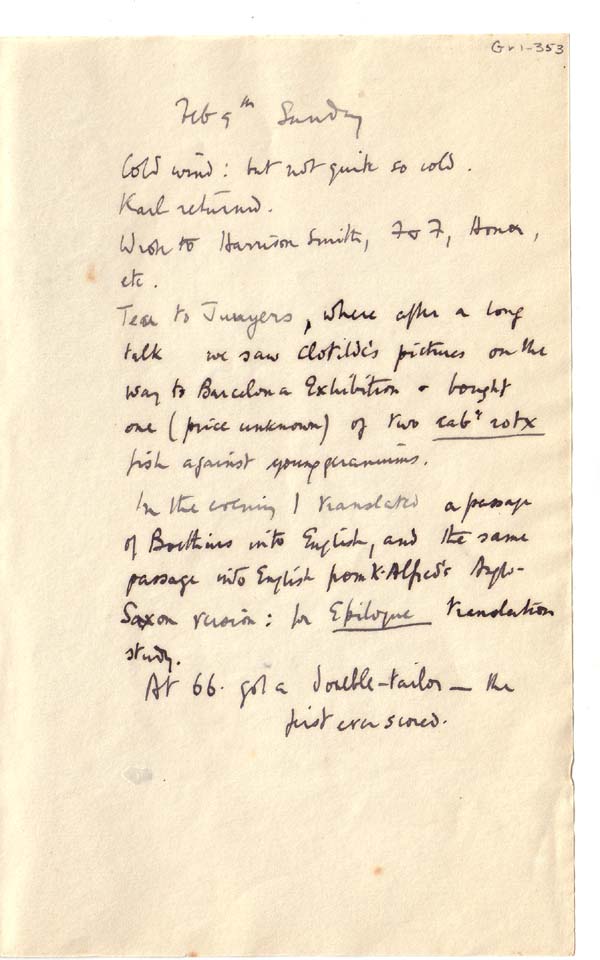 Gr1-353
Feb 9th Sunday
Cold wind: but not quite so cold.
Karl returned.
Wrote to Harrison Smith, F & F, Honor,
etc.
Tea to Jwayers, where after a long
talk we saw Clotilde's pictures on the
way to Barcelona Exhibition & bought
one (price unknown) of two cabt rotx
fish against young geraniums.
In the evening I translated a passage
of Boethius into English, and the same
passage into English from K. Alfred's Anglo-
Saxon version: for Epilogue translation
study.
At 66. got a double-tailor — the
first ever scored.